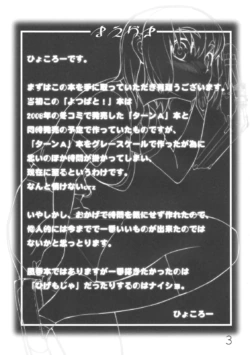 まえがき
ひょころーです。
まずはこの本を手に取っていただき有難うございます。
当初この「よつばと!」本は
2006年の冬コミで発売した「ターンA」本と
同時発売の予定で作っていたものですが、
「ターンA」本をグレースケールで作ったが為に
思いのほか時間が掛かってしまい
現在に至るというわけです。
なんと情けないorz
いやしかし、おかげで時間を気にせず作れたので、
個人的には今までで一番いいものが出来たのでは
ないかと思っとります。
「ひげもじゃ」だったりするのはナイショ。
ひょころー
3